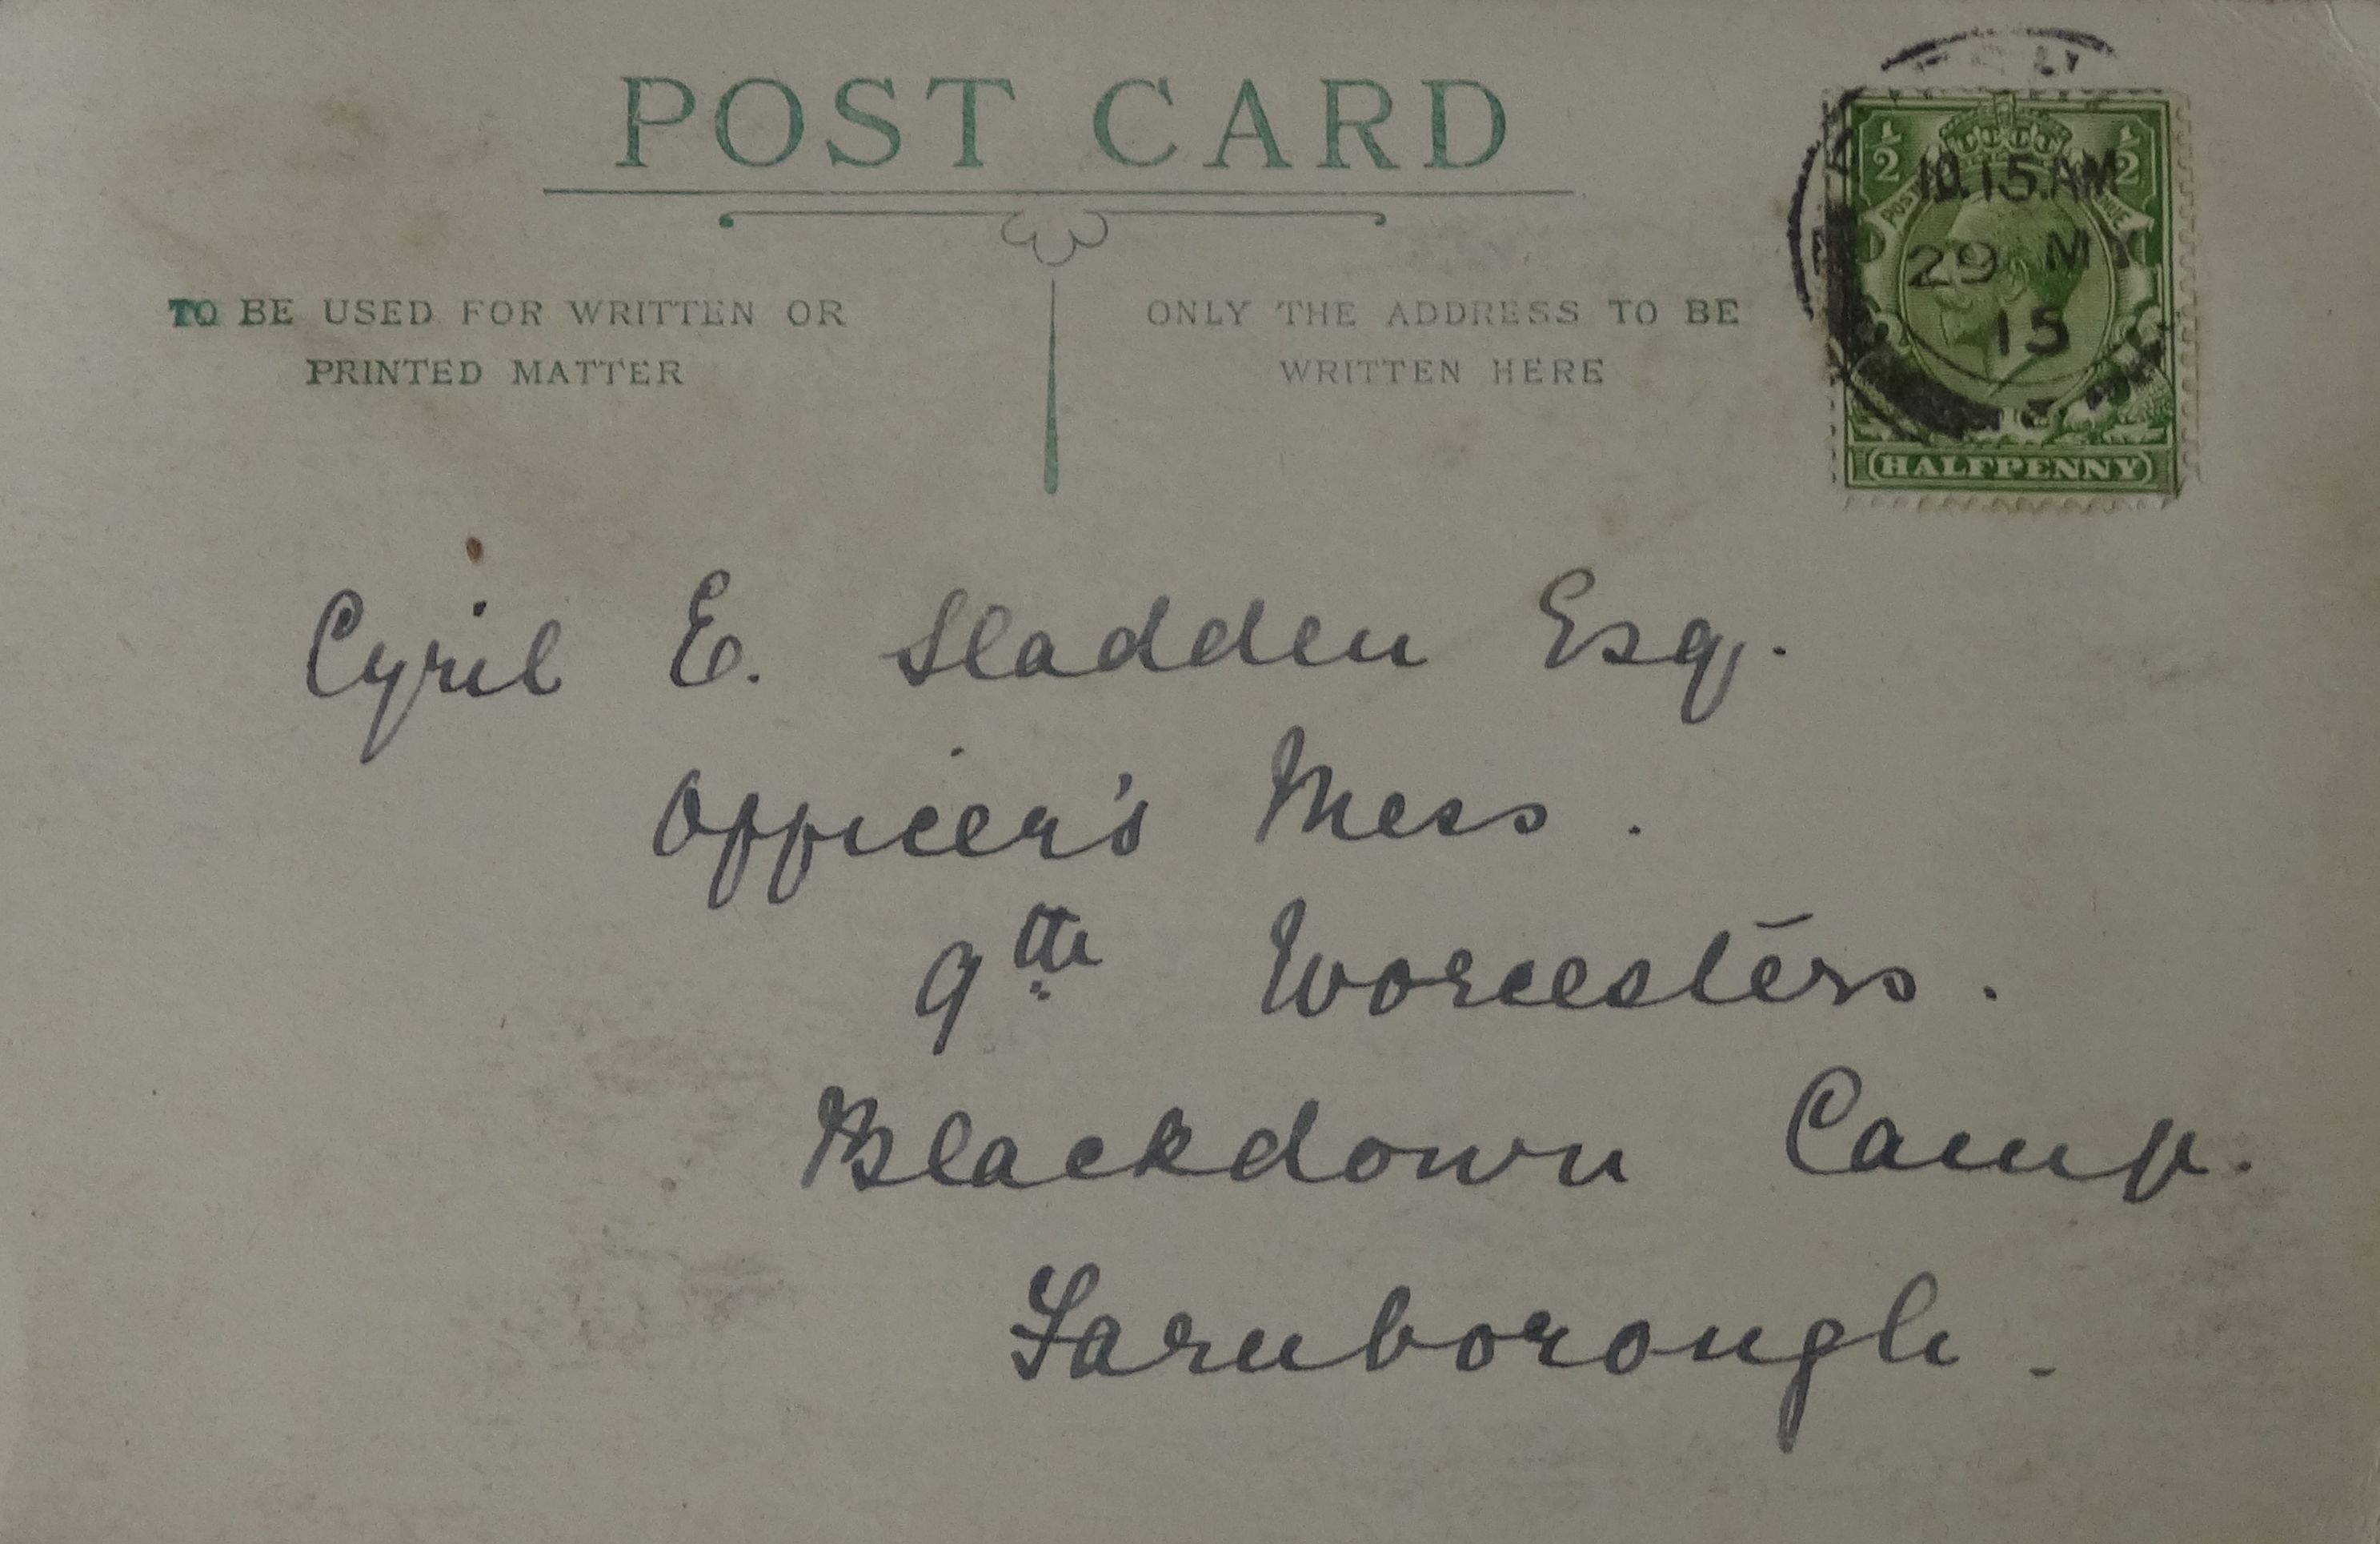 POST CARD
TO BE USED FOR WRITTEN OR
PRINTED MATTER
ONLY THE ADDRESS TO BE
WRITTEN HERE
½ ½
10.15.AM
29 MY
15
HALFPENNY
Cyril E. Sladden Esq.
Officer's Mess.
9th Worcesters.
Blackdown Camp.
Farnborough.